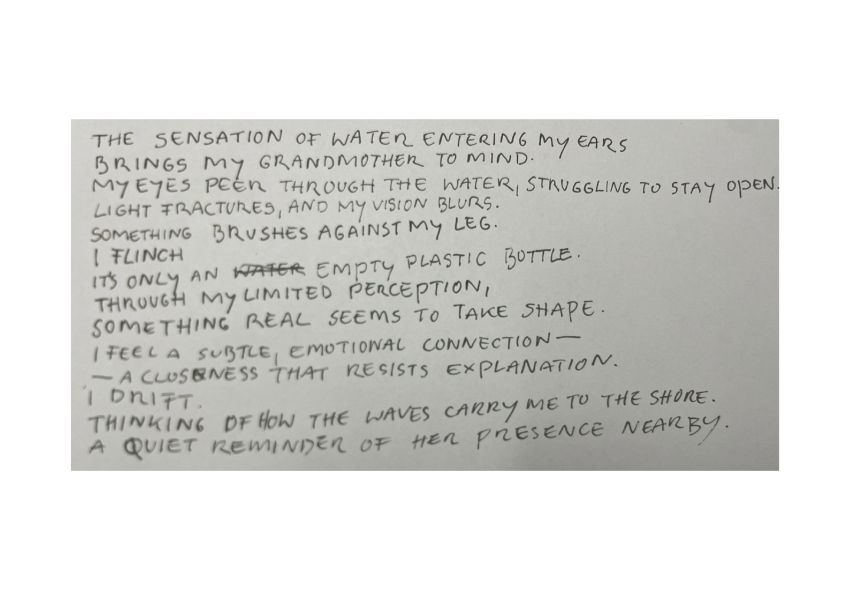 THE SENSATION OF WATER ENTERING MY EARS
BRINGS MY GRANDMOTHER TO MIND.
MY EYES PEER THROUGH THE WATER, STRUGGLING TO STAY OPEN.
LIGHT FRACTURES, AND MY VISION BLURS.
SOMETHING BRUSHES AGAINST MY LEG.
I FLINCH
IT'S ONLY AN WATER EMPTY PLASTIC BOTTLE.
THROUGH MY LIMITED PERCEPTION,
SOMETHING REAL SEEMS TO TAKE SHAPE.
I FEEL A SUBTLE, EMOTIONAL CONNECTION —
— A CLOSENESS THAT RESISTS EXPLANATION.
I DRIFT.
THINKING OF HOW THE WAVES CARRY ME TO THE SHORE.
A QUIET REMINDER OF HER PRESENCE NEARBY.